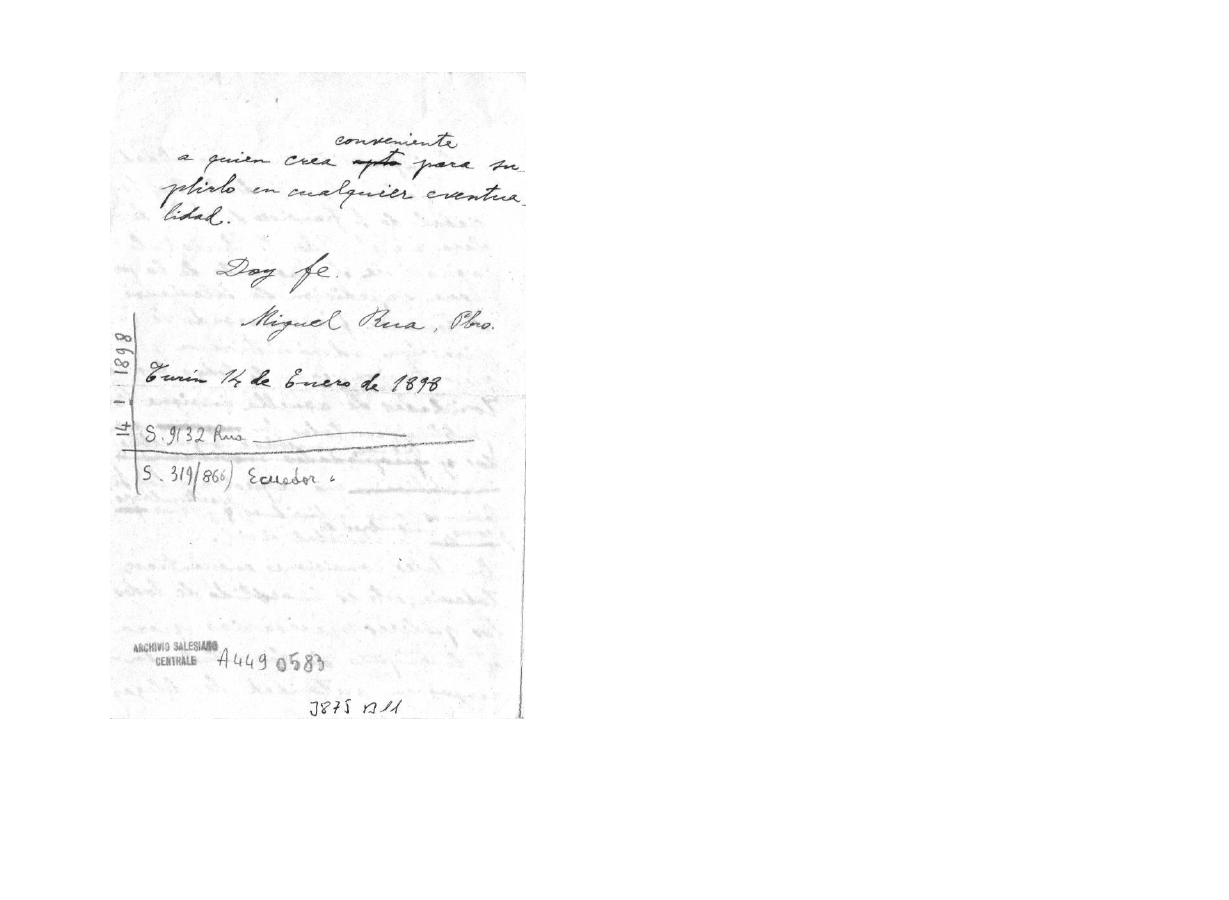 conveniente
a quien crea apto para su
plirlo en cualquier eventua
lidad.
Doy fe.
Miguel Rua, Pbro.
14 1 1898
Turin 14 de Enero de 1898
S. 9132 Rua
S. 319(866) Ecuador
ARCHIVIO SALESIANO
CENTRALE
A449 0583